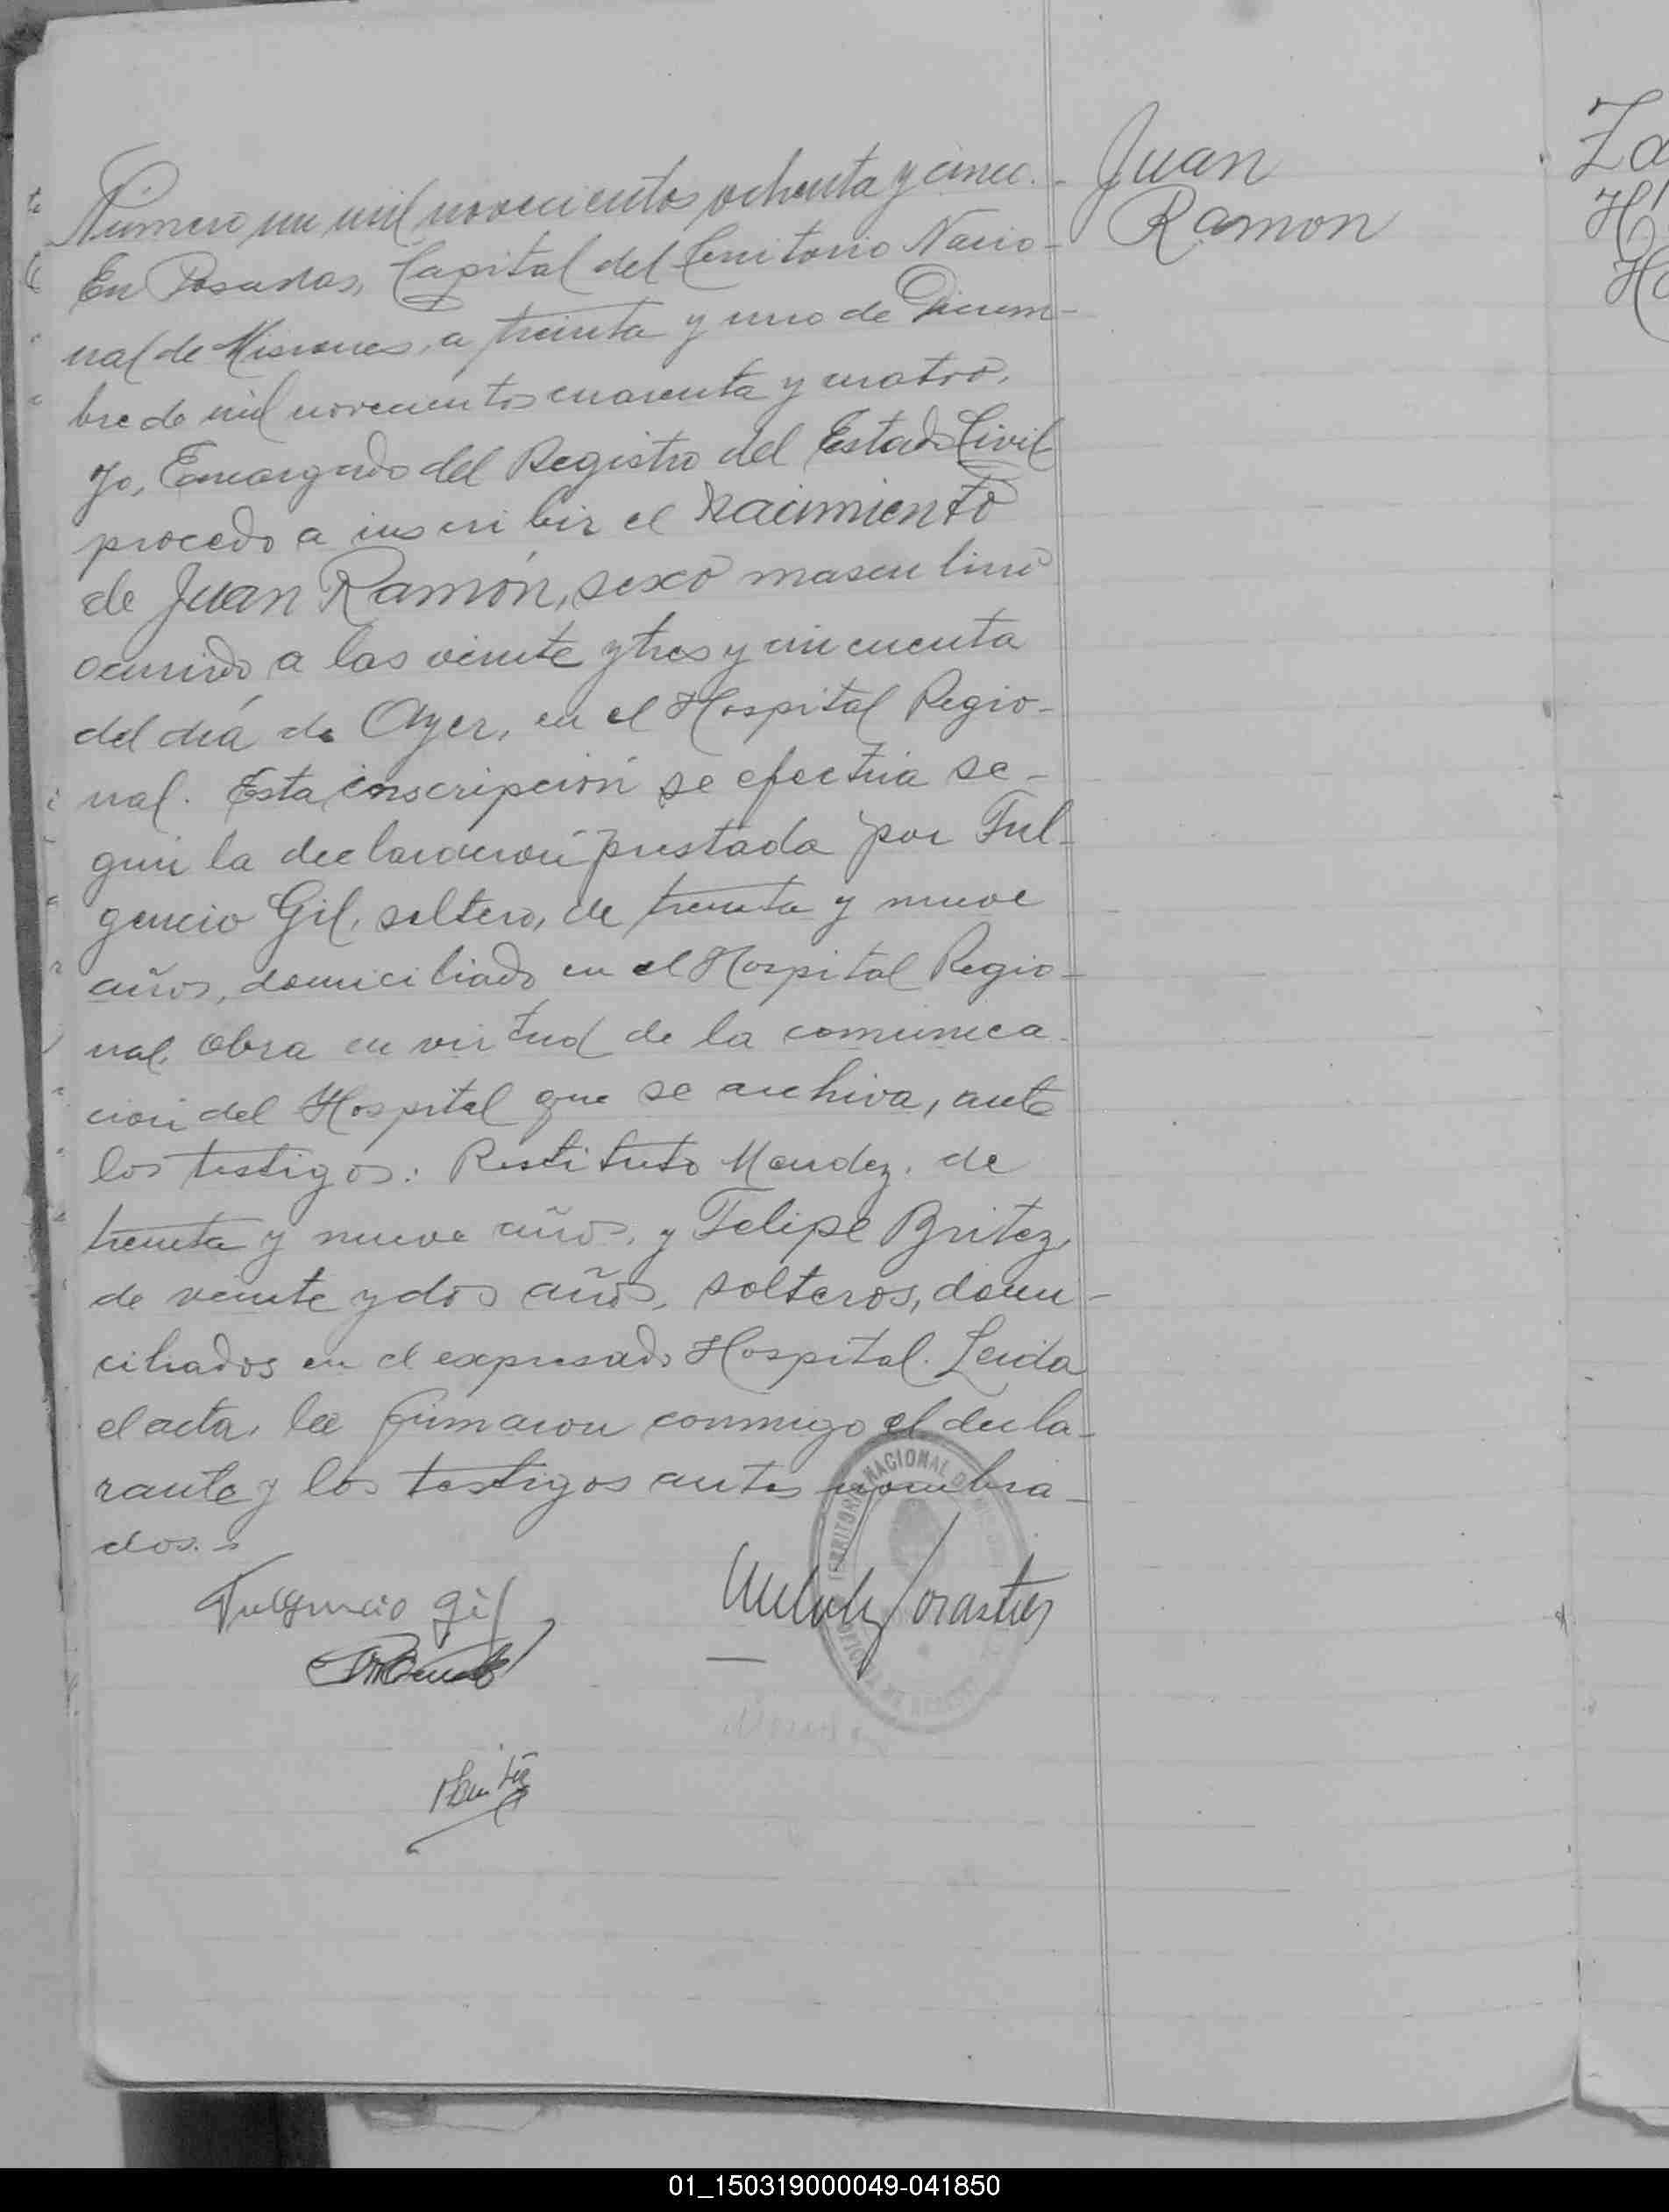 Número un mil novecientos ochenta y cinco.-
En Posadas, Capital del Territorio Nacio-
nal de Misiones, a treinta y uno de Diciem-
bre de mil novecientos cuarenta y cuatro,
yo, Encargado del Registro del Estado Civil
procedo a inscribir el Nacimiento
de Juan Ramón, sexo masculino
ocurrido a las veinte y tres y cincuenta
del día de Ayer, en el Hospital Regio-
nal. Esta inscripción se efectúa se-
gún la declaración prestada por Ful-
gencio Gil, soltero, de treinta y nueve
años, domiciliado en el Hospital Regio-
nal, obra en virtud de la comunica-
ción del Hospital que se archiva, ante
los testigos: Restituto Mendez, de
treinta y nueve años, y Felipe Britez,
de veinte y dos años, solteros, domi-
ciliados en el expresado Hospital. Leida
el acta, la firmaron conmigo el decla-
rante y los testigos antes nombra-
dos.-
Fulgencio Gil
Britez
TERRITORIO NACIONAL DE
Juan
Ramon
01_150319000049-041850